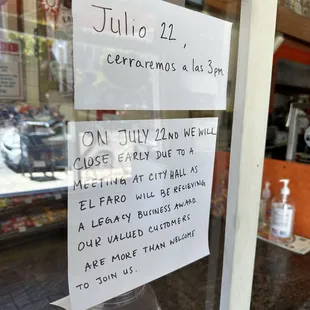 Julio 22,
cerraremos a las 3pm
ON JULY 22ND WE WILL
CLOSE EARLY DUE TO A
MEETING AT CITY HALL AS
EL FARO WILL BE RECIEVING
A LEGACY BUSINESS AWARD.
OUR VALUED CUSTOMERS
ARE MORE THAN WELCOME
TO JOIN US.